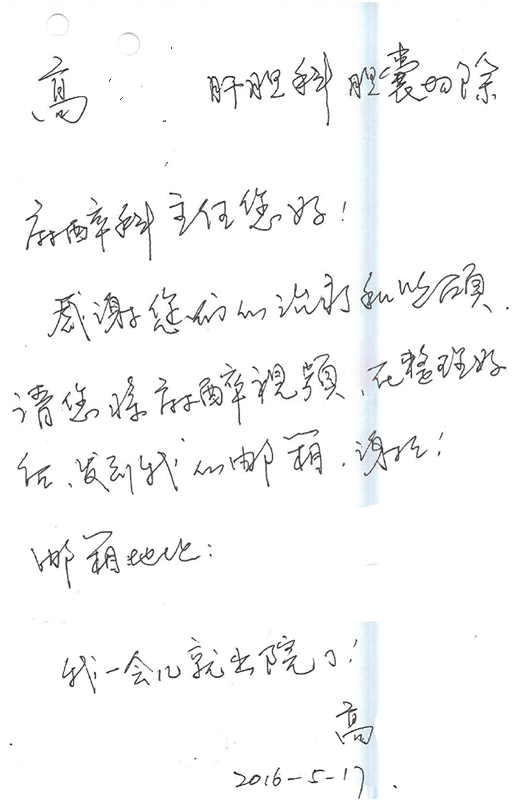 高 肝胆科 胆囊切除
麻醉科主任您好!
感谢您们的治疗和照顾.
请您将麻醉视频、在整理好
后、发到我的邮箱、谢谢!
邮箱地址:
我一会儿就出院了!
高
2016-5-17.